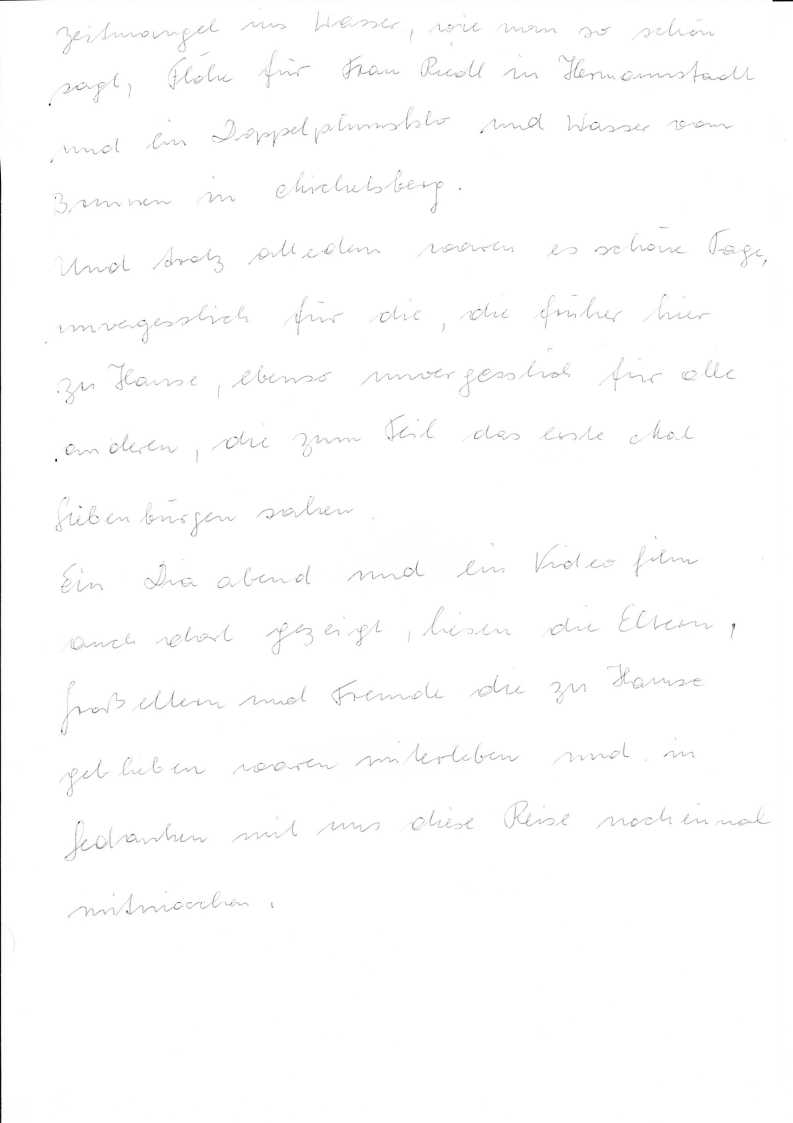 Zeitmangel ins Wasser, wie man so schön
sagt, Flöhe für Frau Riedl in Hermannstadt
und ein Doppelplumsklo und Wasser vom
Brunnen in Michelsberg.
Und trotz alledem waren es schöne Tage,
unvergesslich für die, die früher hier
zu Hause, ebenso unvergesslich für alle
anderen, die zum Teil das erste Mal
Siebenbürgen sahen.
Ein Diaabend und ein Videofilm
auch dort gezeigt, liesen die Eltern,
Großeltern und Freunde die zu Hause
geblieben waren miterleben und in
Gedanken mit uns diese Reise noch einmal
mitmachen.